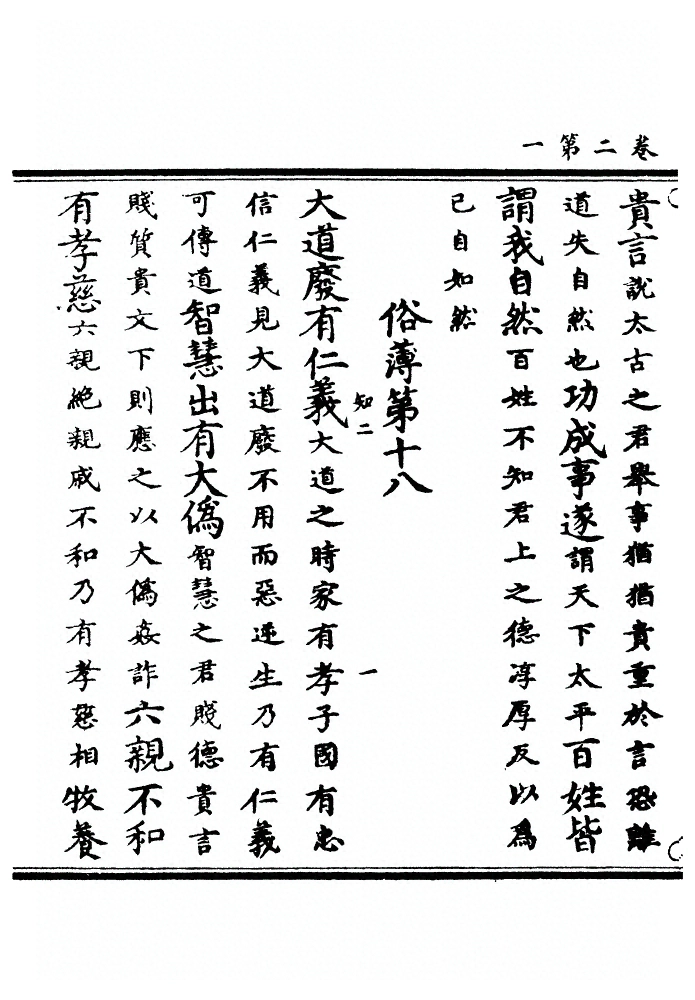 卷二第一
貴言說太古之君舉事猶猶貴重於言恐離
道失自然也功成事遂謂天下太平百姓皆
謂我自然百姓不知君上之德淳厚反以爲
已自如然
俗薄第十八
大道廢有仁義大道之時家有孝子國有忠
知二
一
信仁義見大道廢不用而惡逆生乃有仁義
可傳道智慧出有大僞智慧之君賤德貴言
賤質貴文下則應之以大僞姦詐六親不和
有孝慈六親絶親戚不和乃有孝慈相牧養